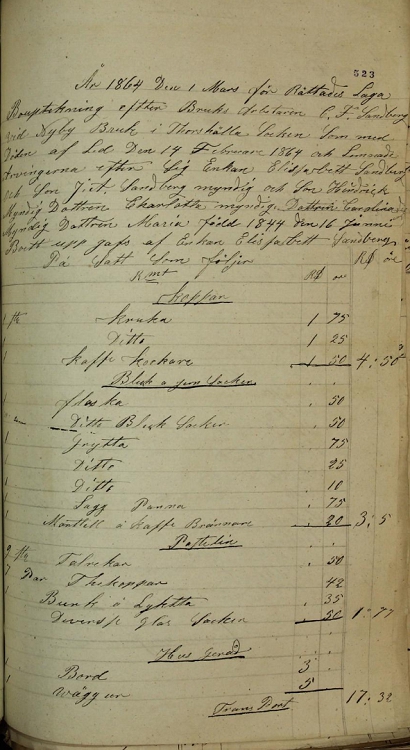 523
År 1864 Den 1 Mars för Rättades Laga
Bouptekning efther Bruks Arbetaren C. F. Sandberg
vid Nyby Bruk i Thorshälla Socken Som med
Döden af Led Den 14 Februari 1864 och Lemnade
Arvingerna efther Sig Enkan Elisabett Sandberg
och Son J. A. Sandberg myndig och Son Hindrick
Myndig Dottren Charlotta myndig Dottrin Carolina
Myndig Dottren Maria född 1844 den 16 Junni
Boitt upp gafs af Enkan Elisabett Sandberg
På Satt Som följer Rd öre
Rmt Rd ör
Koppar
1 st Kruka 1 75
1 Ditto 1 25
1 Kaffe Kockare 1 50 4:50
Bleck o jern Sacker
1 flaska . 50
Ditto Bleck Saker . 50
1 Grytta 75
1 Ditto 25
1 Ditto 10
1 Lagg Panna . 75
1 Mortell o Kaffe Brännare . 20 3:5
Postelin
9 st Talrikar . 50
7 Par Thekoppar 42
Bunk o Lyktta . 35
Diverse glas Sacker . 50 1:77
Hus gerad
1 Bord 3
1 Wägg ur 5
Trans Port 17:32